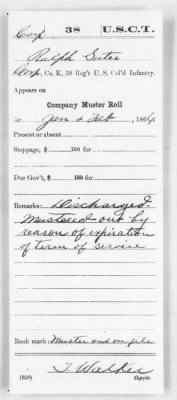 Cor 38 U.S.C.T.
Ralph Suter
Corp, Co. K, 38 Reg't U. S. Col'd Infantry.
Appears on
Company Muster Roll
for Jan & Feb, 186
Present or absent
Stoppage, $ 100 for
Due Gov't, $ 100 for
Remarks: Discharged
Mustered out by
reason of expiration
of term of service
Book mark: Muster out on file
T. Walker
(858) Copyist.